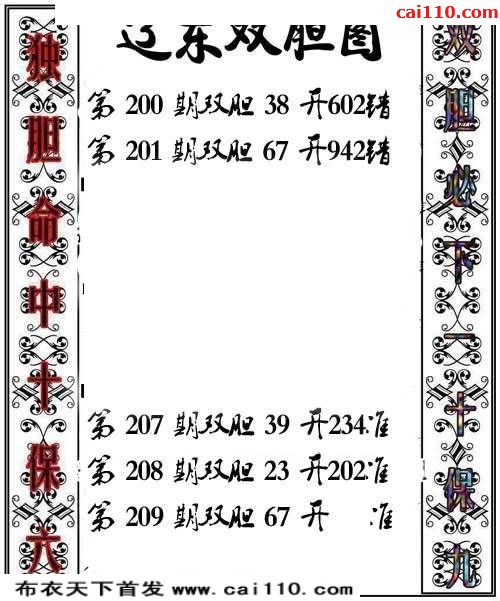 cai110.com
辽东双胆图
独胆命中十保六
双胆必下一十保九
第 200 期双胆 38 开602错
第 201 期双胆 67 开942错
第 207 期双胆 39 开234准
第 208 期双胆 23 开202准
第 209 期双胆 67 开 准
布衣天下首发 www.cai110.com